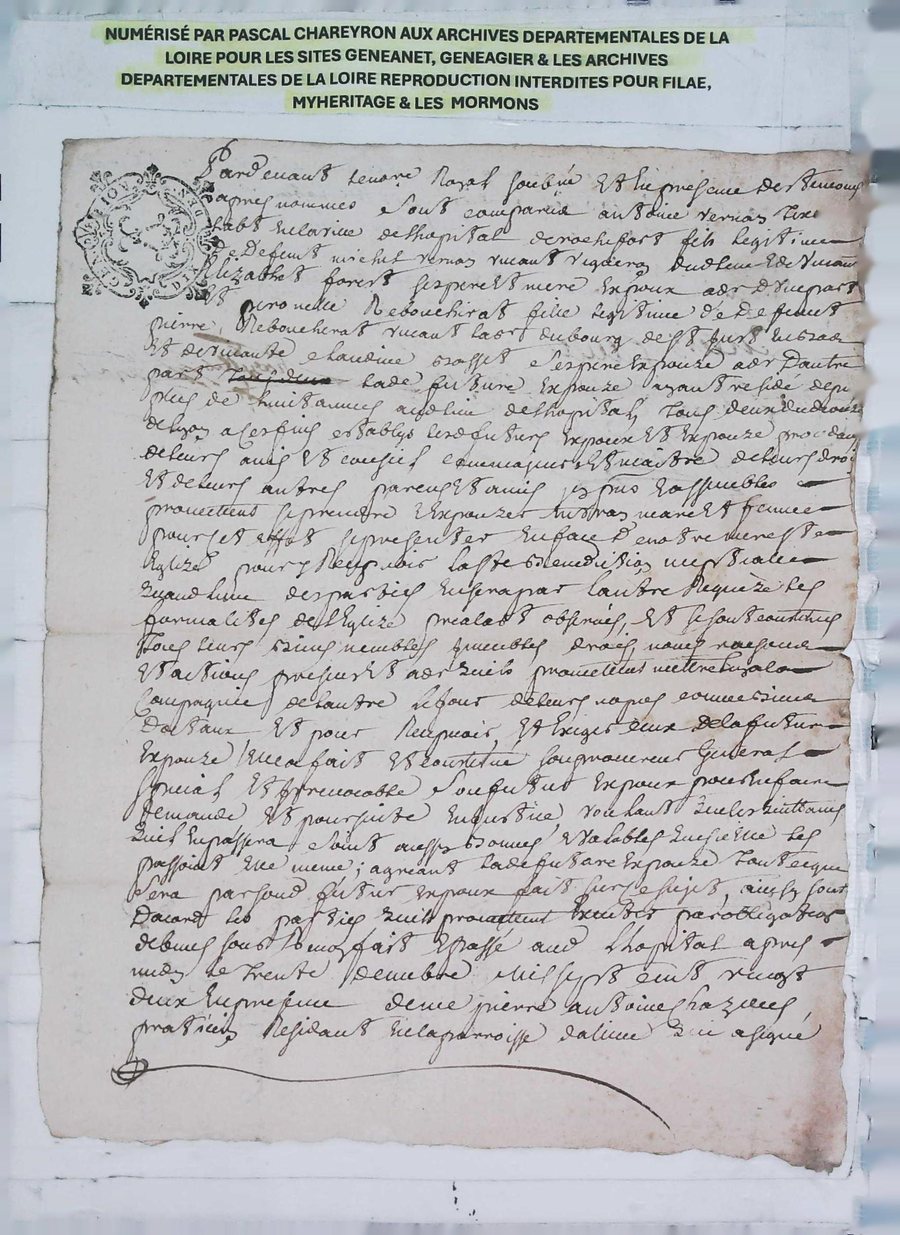 NUMÉRISÉ PAR PASCAL CHAREYRON AUX ARCHIVES DEPARTEMENTALES DE LA
LOIRE POUR LES SITES GENEANET, GENEAGIER & LES ARCHIVES
DEPARTEMENTALES DE LA LOIRE REPRODUCTION INTERDITES POUR FILAE,
MYHERITAGE & LES MORMONS
Pardevant notaire Royal et en presence des temoins
apres nommes sont comparus antoine vernay
habt en la ville de lhopital de rochefort fils legitime
de Deffunt michel vernay vivant vigneron dud lieu et de vivante
Elizabet forest ses pere et mere Expoux adv d'une part
Et peronelle Reboucherat fille legitime de Deffunt
pierre Reboucherat vivant labr du bourg de st
Et de vivante claudine ses pere Expouze adv D'autre
part lade future Expouze ayant reside depuis
plus de huit annes aud lieu de lhopital, tous deux du dioceze
de Lyon a ces fins establys lesd futurs Expoux et Expouze procedans
de leurs avis et conseil et de leurs droits
et de leurs autres parens et amis assembles
promettent se prendre et Expouzer en vray mary et femme
pour cet effet se presenter en face de notre mere ste
Eglize pour y Recepvoir la ste benediction nuptialle
quand l'une des parties en sera par l'autre Requize les
formalites de l'Eglize prealabt observées, et se sont constitués
tous leurs biens meubles immeubles droits noms raisons
et actions presents et adv quils promettent mettre
Compagnie de lautre le jour de leurs nopces
et pour Recepvoir et Exiger ceux de la future
Expouze elle a fait et constitué son procureur General
special et irrevocable son futur Expoux pour en faire
demande et poursuite en justice voulant que les quittances
quil en passera soint aussy bonnes et valables que sy elle les
passoit elle meme; agreant lade future Expouze tout ce que
sera par sond futur Expoux fait sur ce sujet, ainsy sont
Dacord les parties quils promettent par obligation
de biens sous fait et passé aud lhopital apres
midy le trente decembre mil sept cent vingt
deux En presence de me pierre antoine
praticien Residant en la parroisse qui a signé